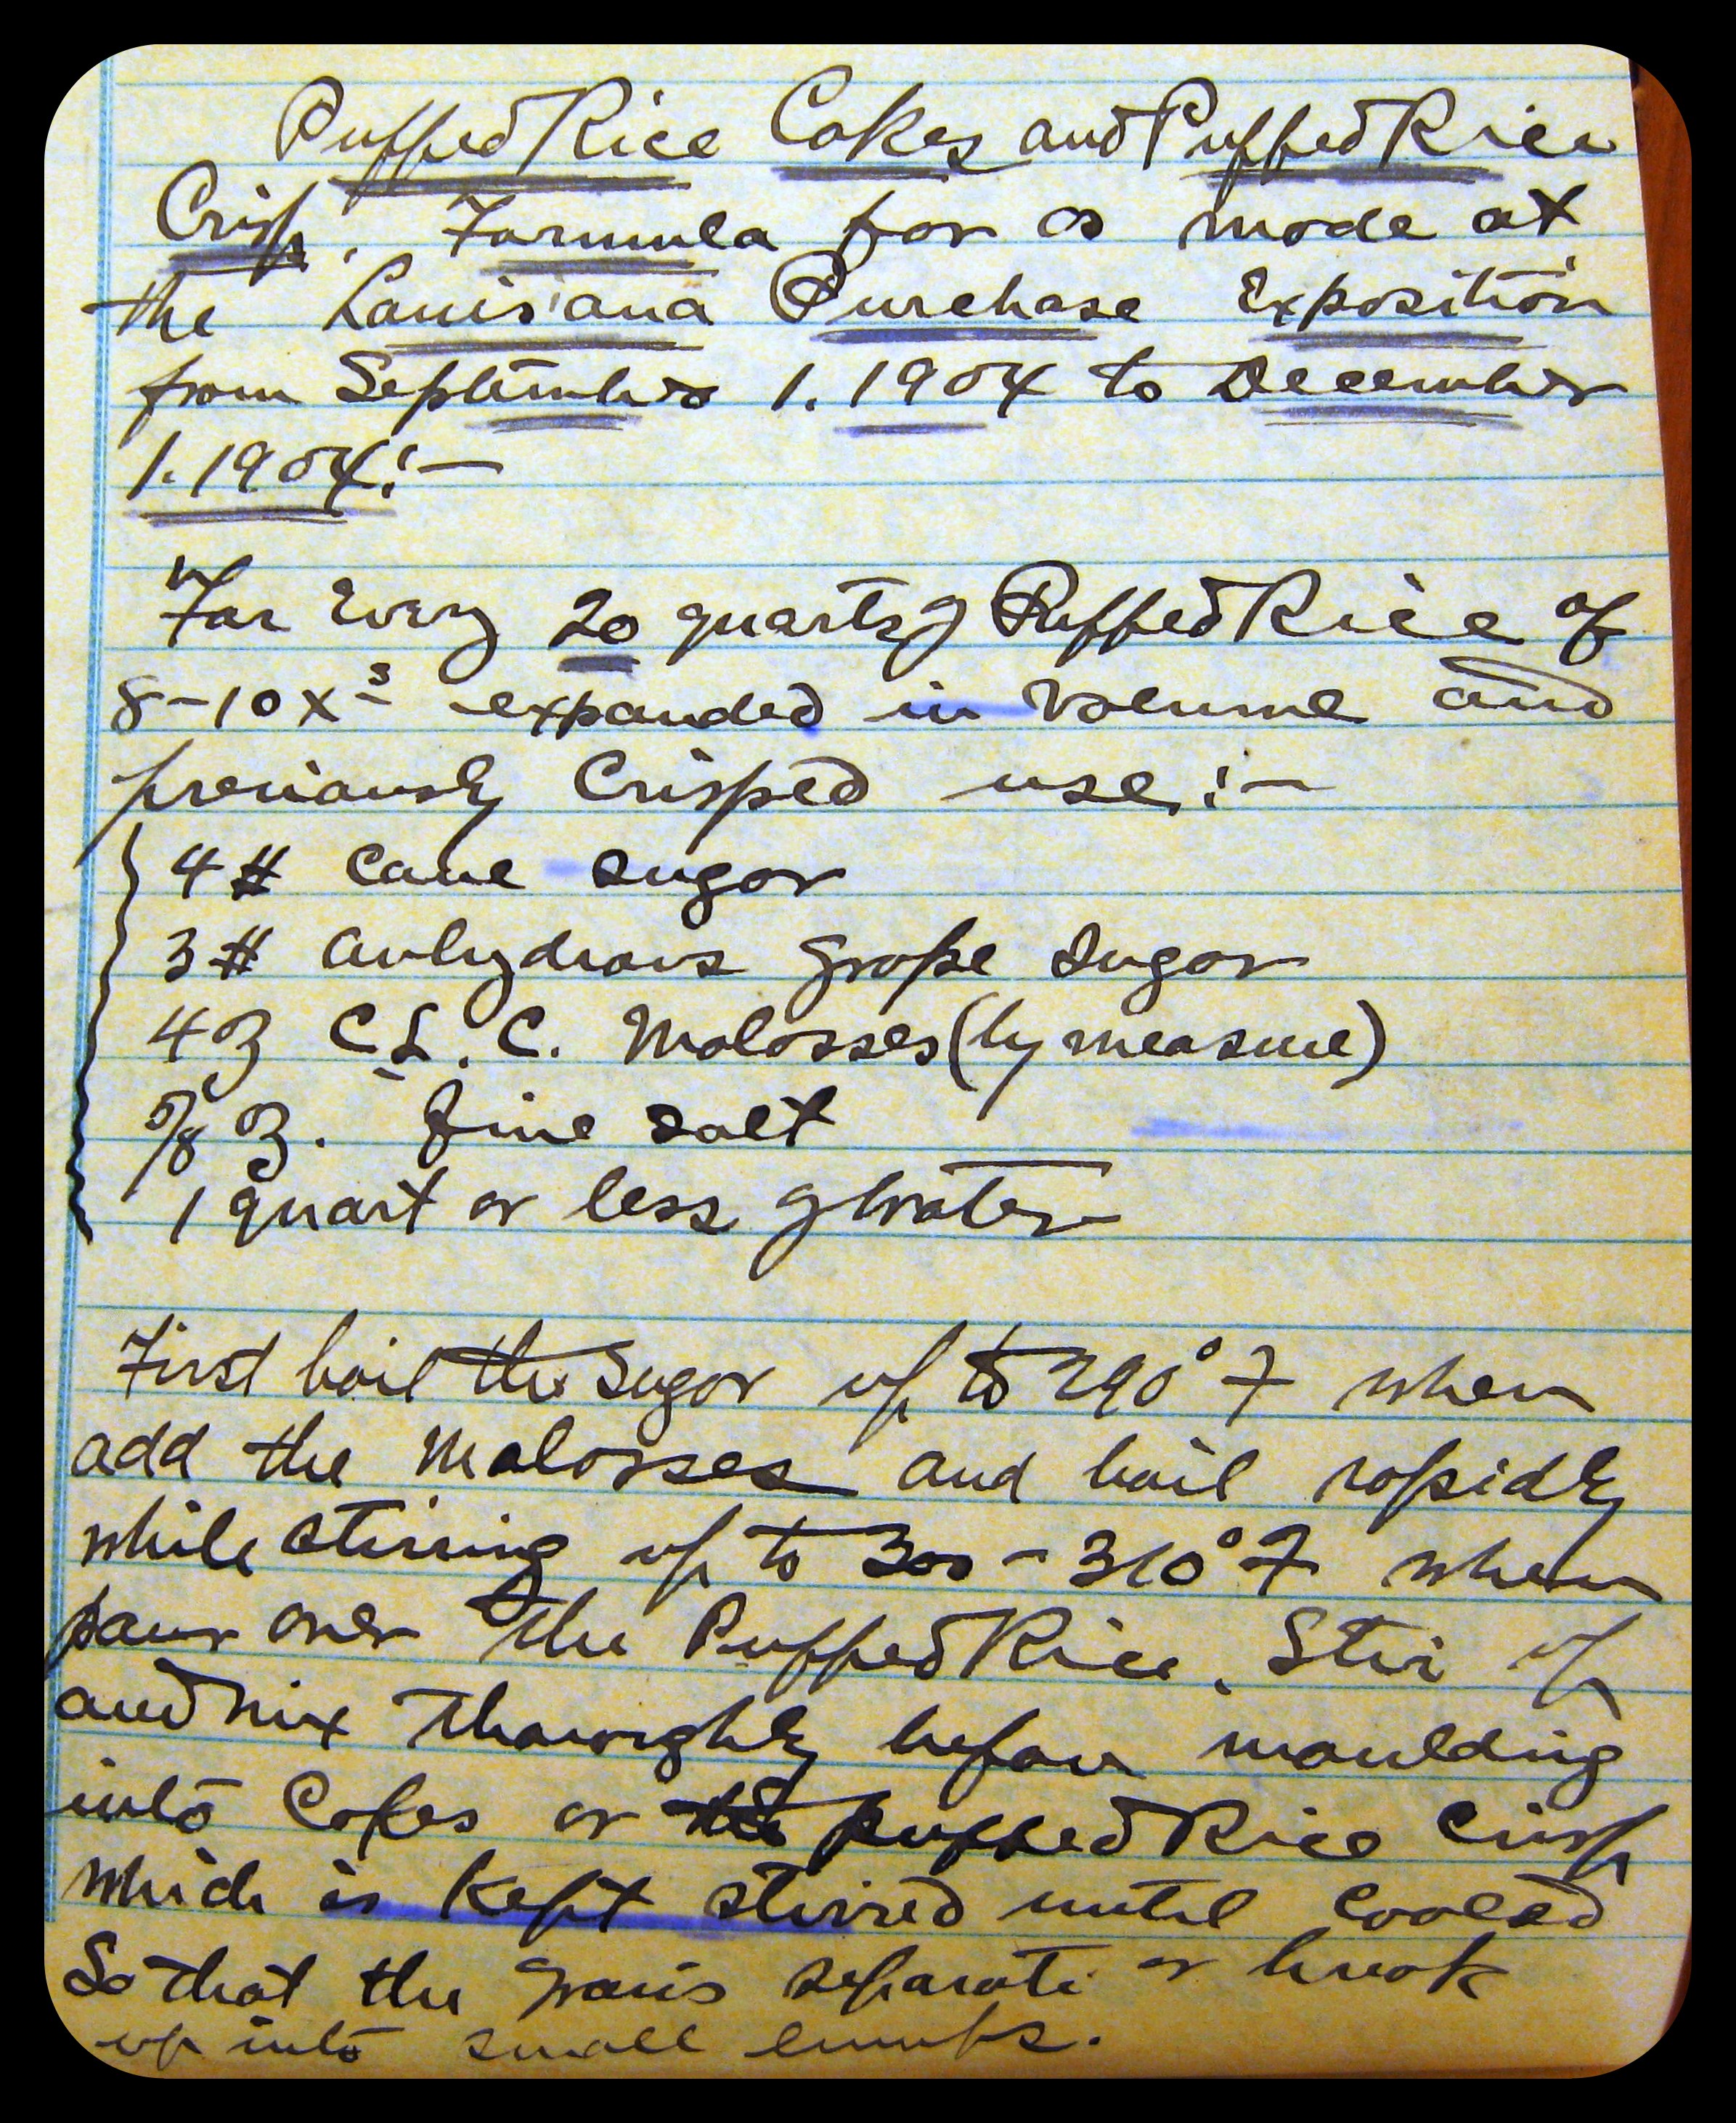 Puffed Rice Cakes and Puffed Rice
Crisp. Formula for as made at
the Louisiana Purchase Exposition
from September 1. 1904 to December
1. 1904:—
"For Every 20 quarts of Puffed Rice of
8-10 xs expanded in volume and
previously Crisped use:—
4# Cane sugar
3# anhydrous grape sugar
4℥ C.L.C. Molasses (by measure)
5/8 ℥. fine salt
1 quart or less of water
First boil the sugar up to 290°F when
add the Molasses and boil rapidly
while stirring up to 300-310°F when
pour over the Puffed Rice. Stir up
and mix thoroughly before moulding
into Cakes or puffed Rice Crisp
which is kept stirred until cooled
So that the grains separate or break
up into small lumps.